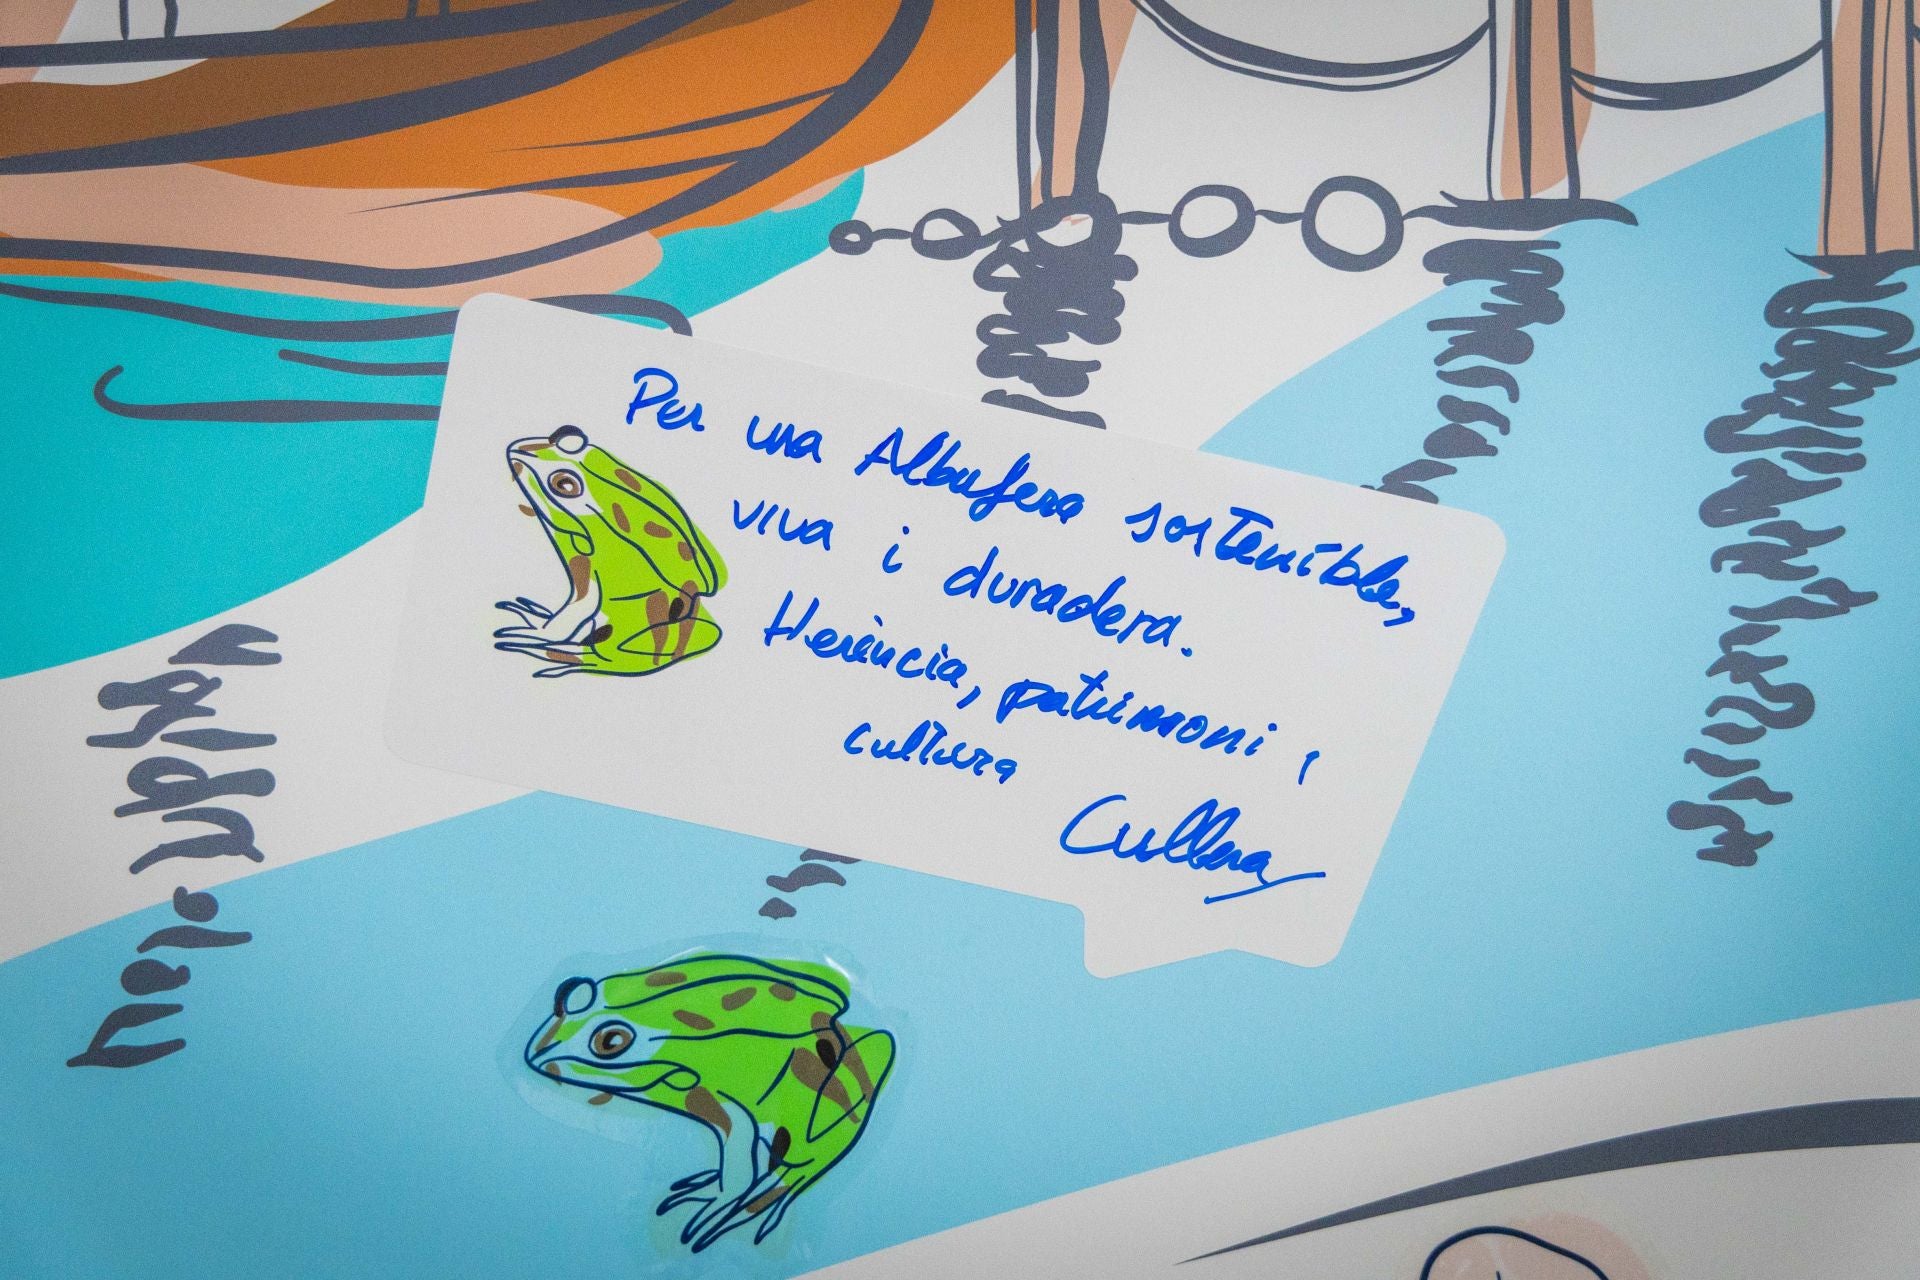 Per una Albufera sostenible,
viva i duradera.
Herència, patrimoni i
cultura
Cullera